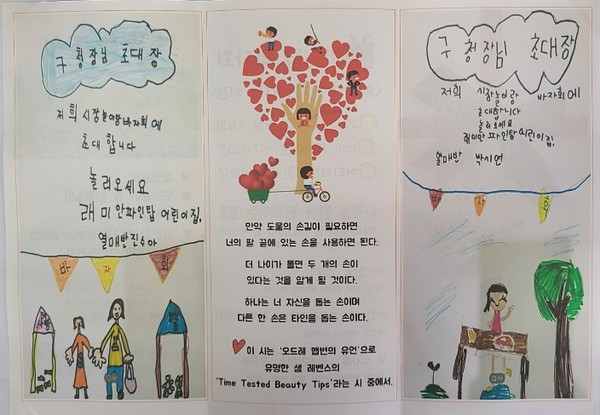 구청장님 초대장
저희 시장놀이랑 바자회에
초대합니다
놀러오세요
래미안파인탑 어린이집.
열매반 진수아
바 자 회
만약 도움의 손길이 필요하면
너의 팔 끝에 있는 손을 사용하면 된다.
더 나이가 들면 두 개의 손이
있다는 것을 알게 될 것이다.
하나는 너 자신을 돕는 손이며
다른 한 손은 타인을 돕는 손이다.
이 시는 '오드레 햅번의 유언'으로
유명한 샘 레벤슨의
'Time Tested Beauty Tips'라는 시 중에서.
구청장님 초대장
저희 시장놀이랑 바자회에
초대합니다
놀러오세요
래미안파인탑어린이집.
열매반 박시연
바 자